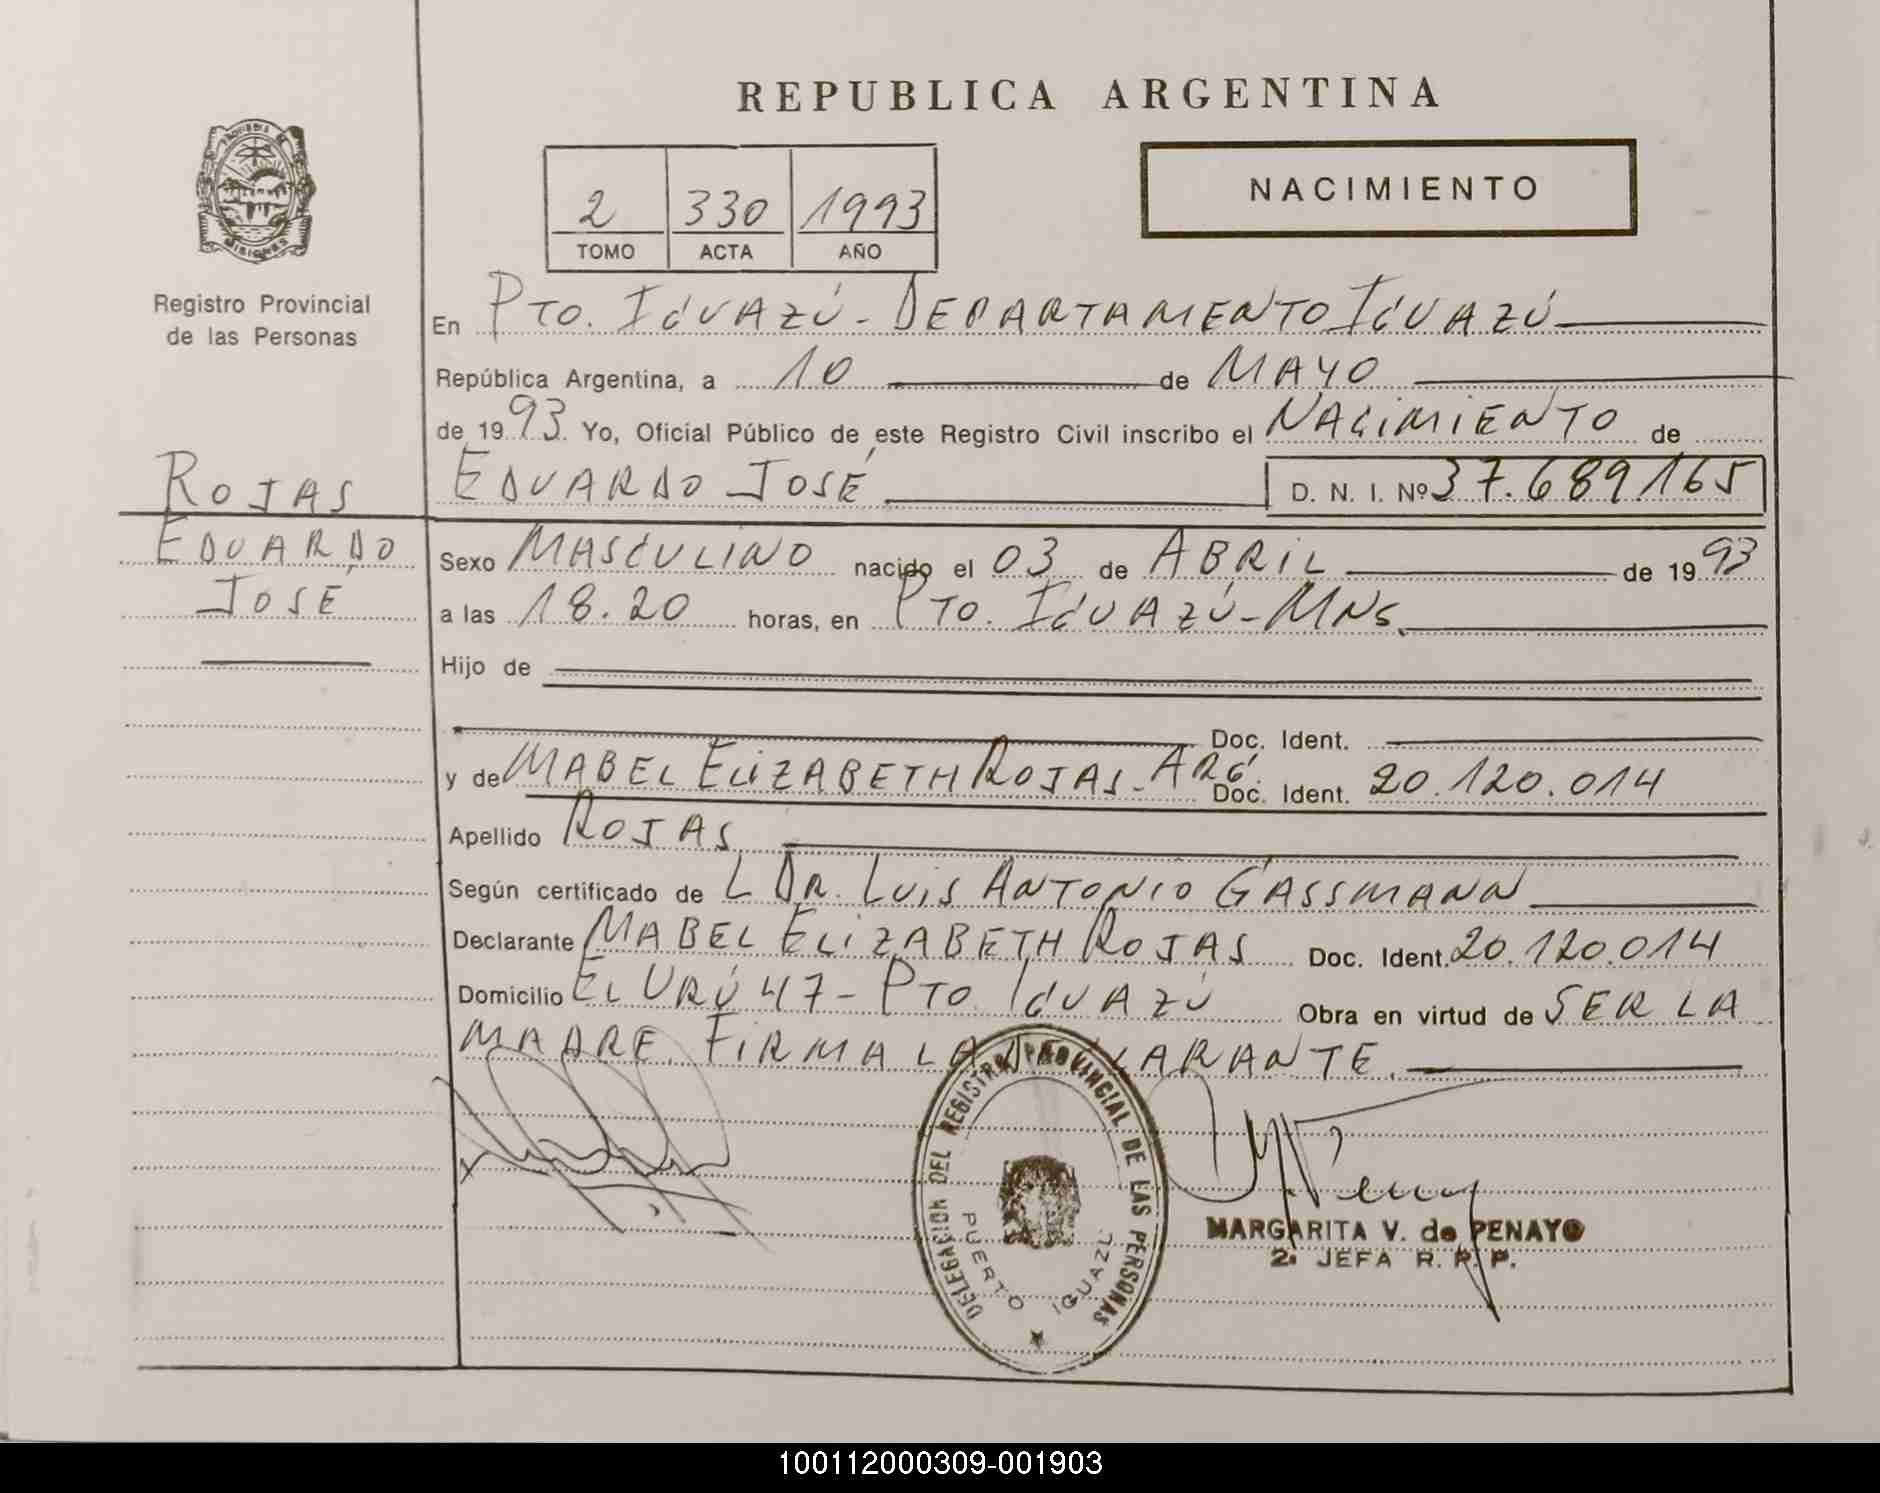 REPUBLICA ARGENTINA
NACIMIENTO
2 330 1993
TOMO ACTA AÑO
Registro Provincial
de las Personas
En PTO. IGUAZÚ - DEPARTAMENTO IGUAZÚ
República Argentina, a 10 de MAYO
de 1993. Yo, Oficial Público de este Registro Civil inscribo el NACIMIENTO de
EDUARDO JOSÉ D. N. I. Nº 37.689.165
ROJAS
EDUARDO
JOSÉ
Sexo MASCULINO nacido el 03 de ABRIL de 1993
a las 18.20 horas, en PTO. IGUAZÚ - MNS.
Hijo de
Doc. Ident.
y de MABEL ELIZABETH ROJAS - ARG. Doc. Ident. 20.120.014
Apellido ROJAS
Según certificado de L DR. LUIS ANTONIO GASSMANN
Declarante MABEL ELIZABETH ROJAS Doc. Ident. 20.120.014
Domicilio EL URÚ 47 - PTO. IGUAZÚ Obra en virtud de SER LA
MADRE. FIRMA LA DECLARANTE.
DELEGACION DEL REGISTRO PROVINCIAL DE LAS PERSONAS
PUERTO IGUAZU
MARGARITA V. de PENAYO
2ª JEFA R. P. P.
100112000309-001903